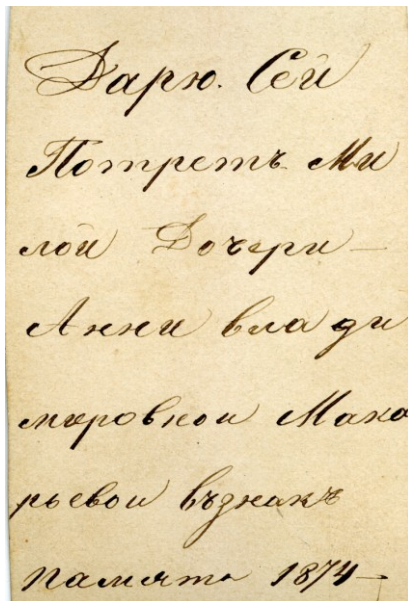 Дарю. Сей
Потретъ Ми
лой Дочери —
Анни влади
мировной Мака
рьевои възнакъ
память 1874 —